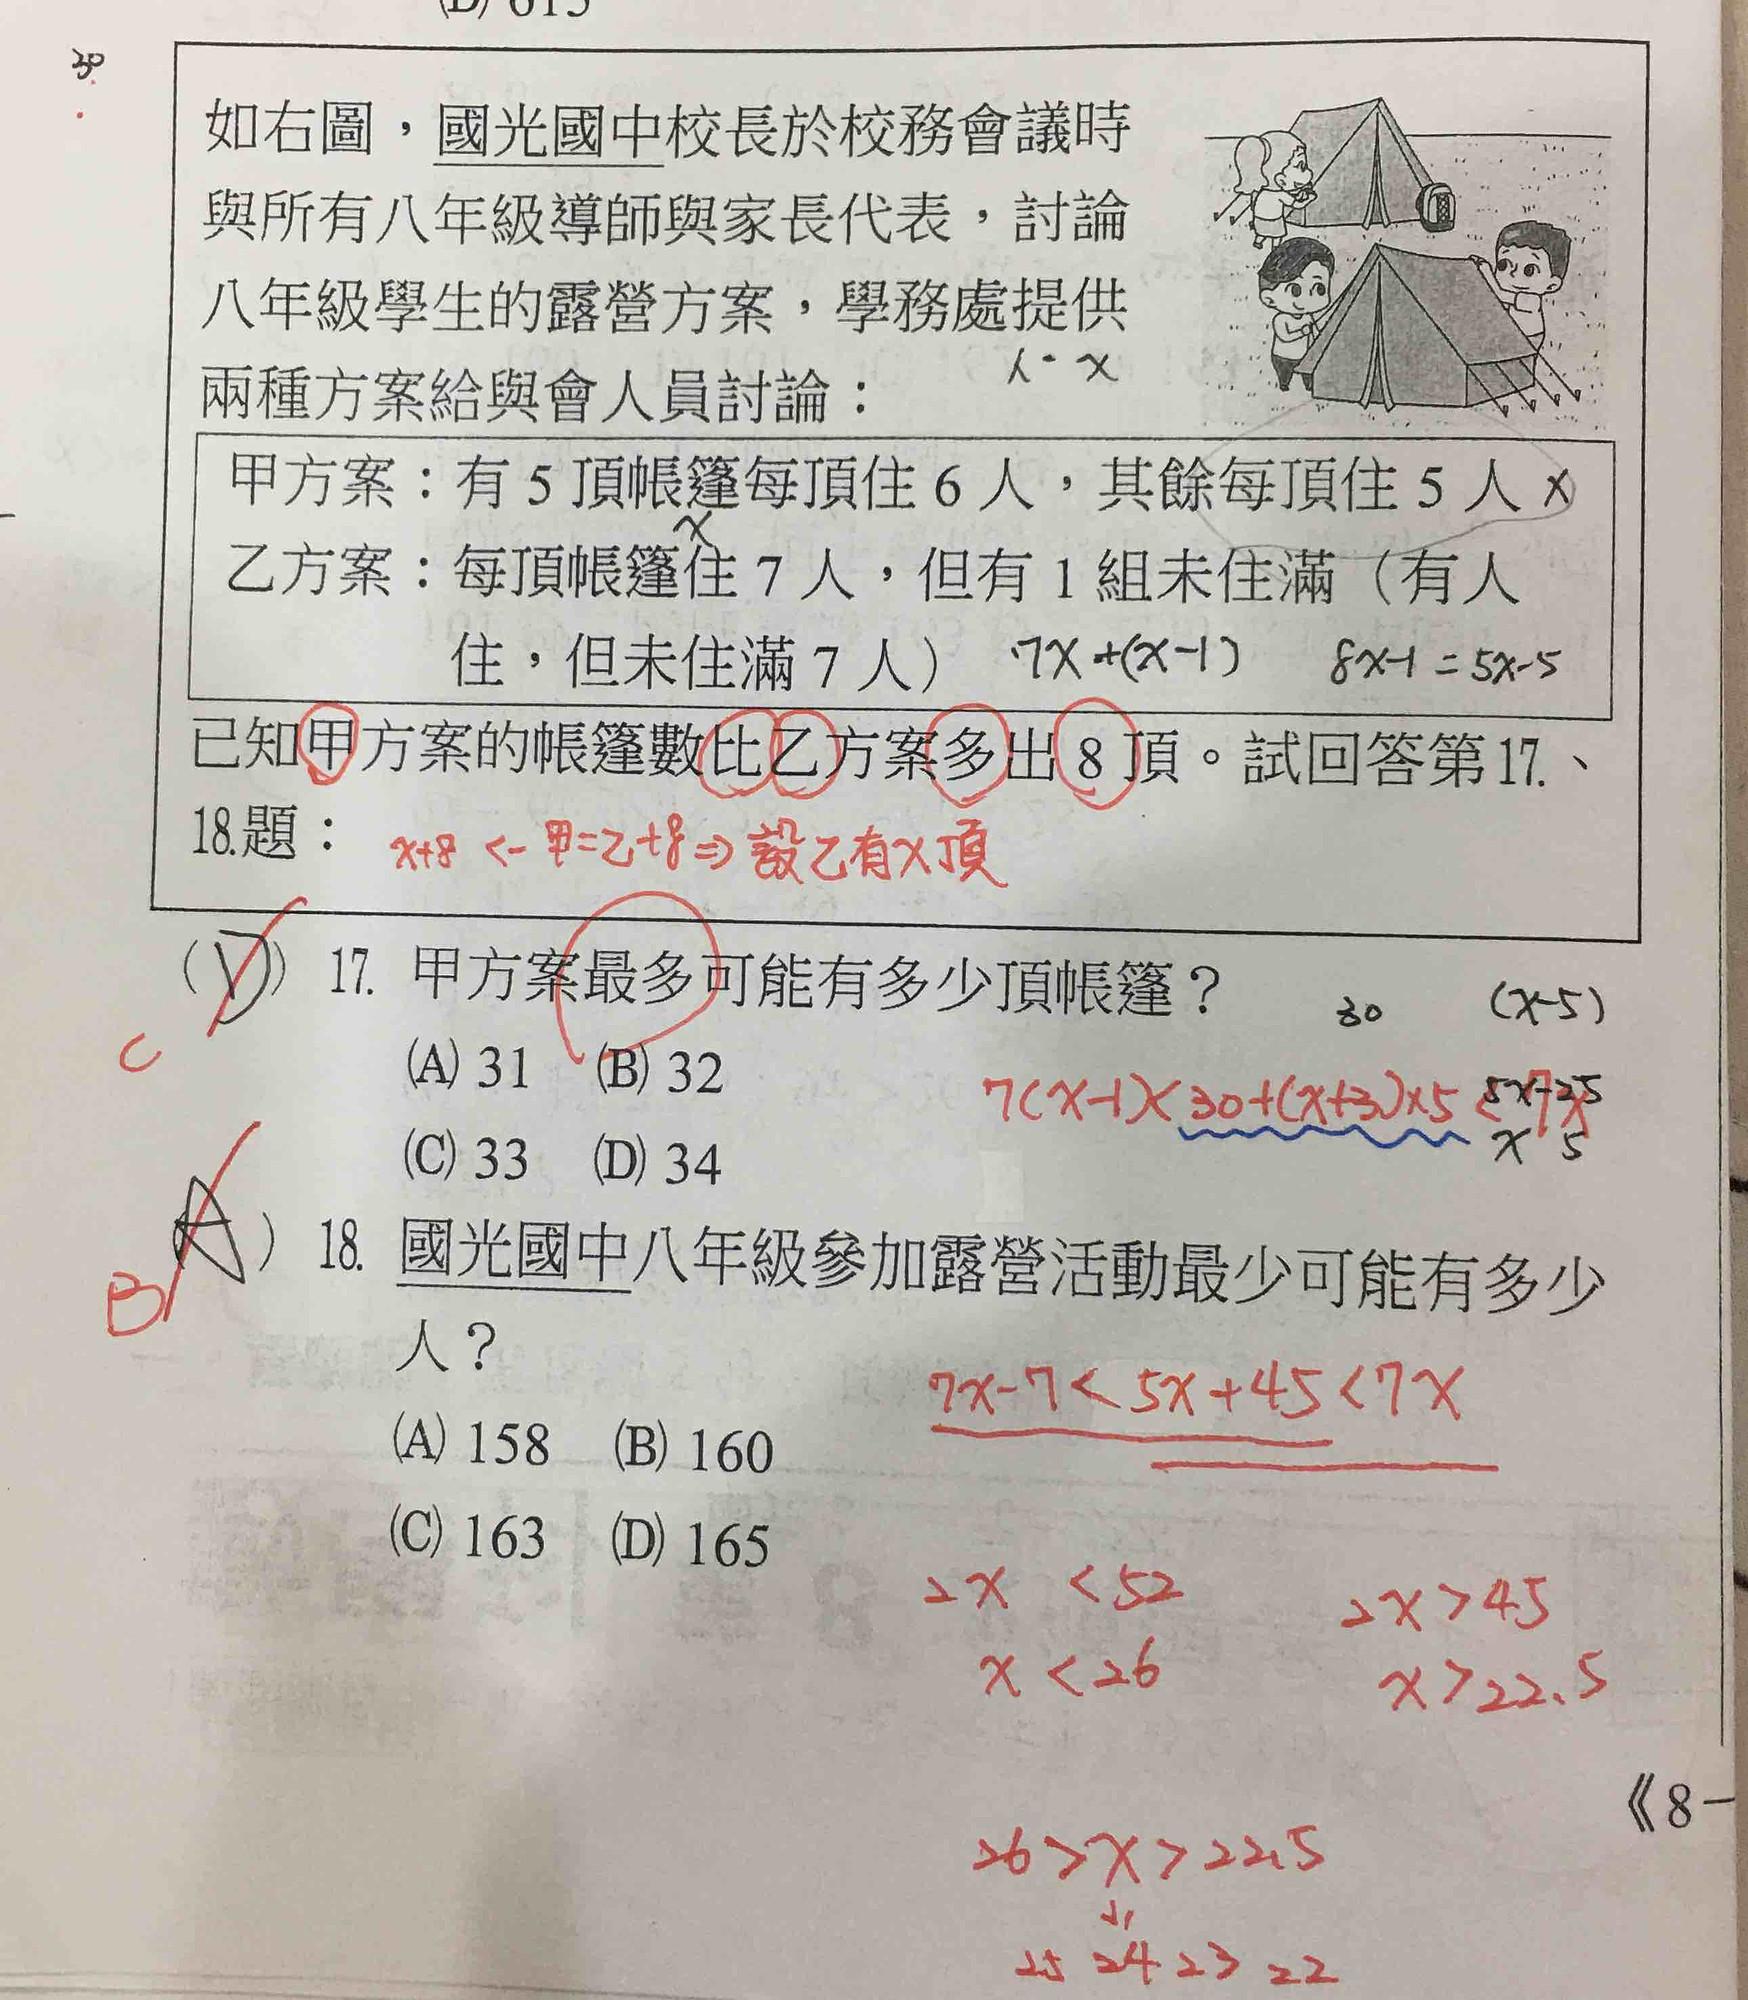 (D) 615
30
如右圖，國光國中校長於校務會議時
與所有八年級導師與家長代表，討論
八年級學生的露營方案，學務處提供
兩種方案給與會人員討論：
甲方案：有 5 頂帳篷每頂住 6 人，其餘每頂住 5 人 x
x
乙方案：每頂帳篷住 7 人，但有 1 組未住滿（有人
住，但未住滿 7 人） 7x+(x-1) 8x-1=5x-5
已知甲方案的帳篷數比乙方案多出 8 頂。試回答第17.、
18.題： x+8 <- 甲=乙+8 => 設乙有x頂
(D) 17. 甲方案最多可能有多少頂帳篷？ 30 (x-5)
C
(A) 31 (B) 32
7(x-1)<30+(x+3)×5<7x 5x-25
x 5
(C) 33 (D) 34
(A) 18. 國光國中八年級參加露營活動最少可能有多少
B
人？
7x-7<5x+45<7x
(A) 158 (B) 160
(C) 163 (D) 165
2x <52 2x>45
x<26 x>22.5
《8-
26>x>22.5
25 24 23 22